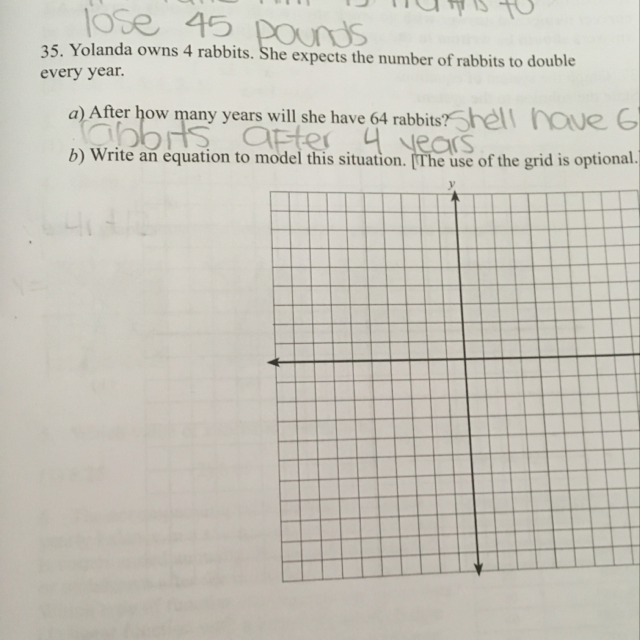 lose 45 pounds
35. Yolanda owns 4 rabbits. She expects the number of rabbits to double
every year.
a) After how many years will she have 64 rabbits? Shell have 6
rabbits after 4 years
b) Write an equation to model this situation. [The use of the grid is optional.
y